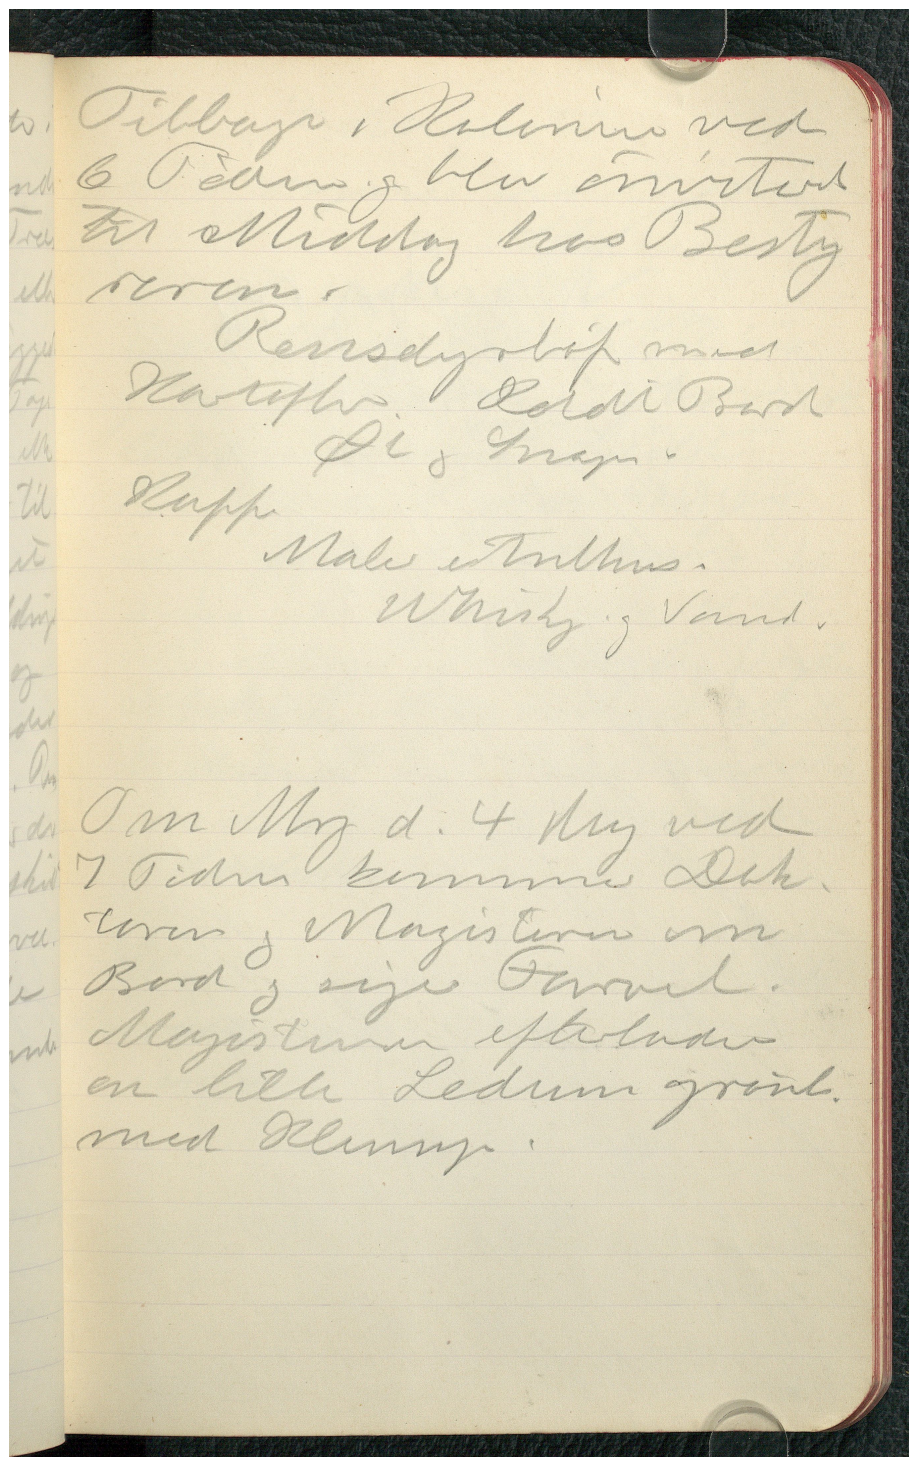 Tilbage i Kolonien ved
6 Tiden og blev inviteret
til Middag hos Besty
reren.
Rensdyrbøf med
Kartofler. Koldt Bord
Øl og Snaps.
Kaffe
Maler
Whisky og Vand.
Om Mrg d. 4 Aug ved
7 Tiden kommer Dok-
toren og Magisteren om
Bord og siger Farvel.
Magisteren efterlader
en lille Ledum grønl.
med Klump.